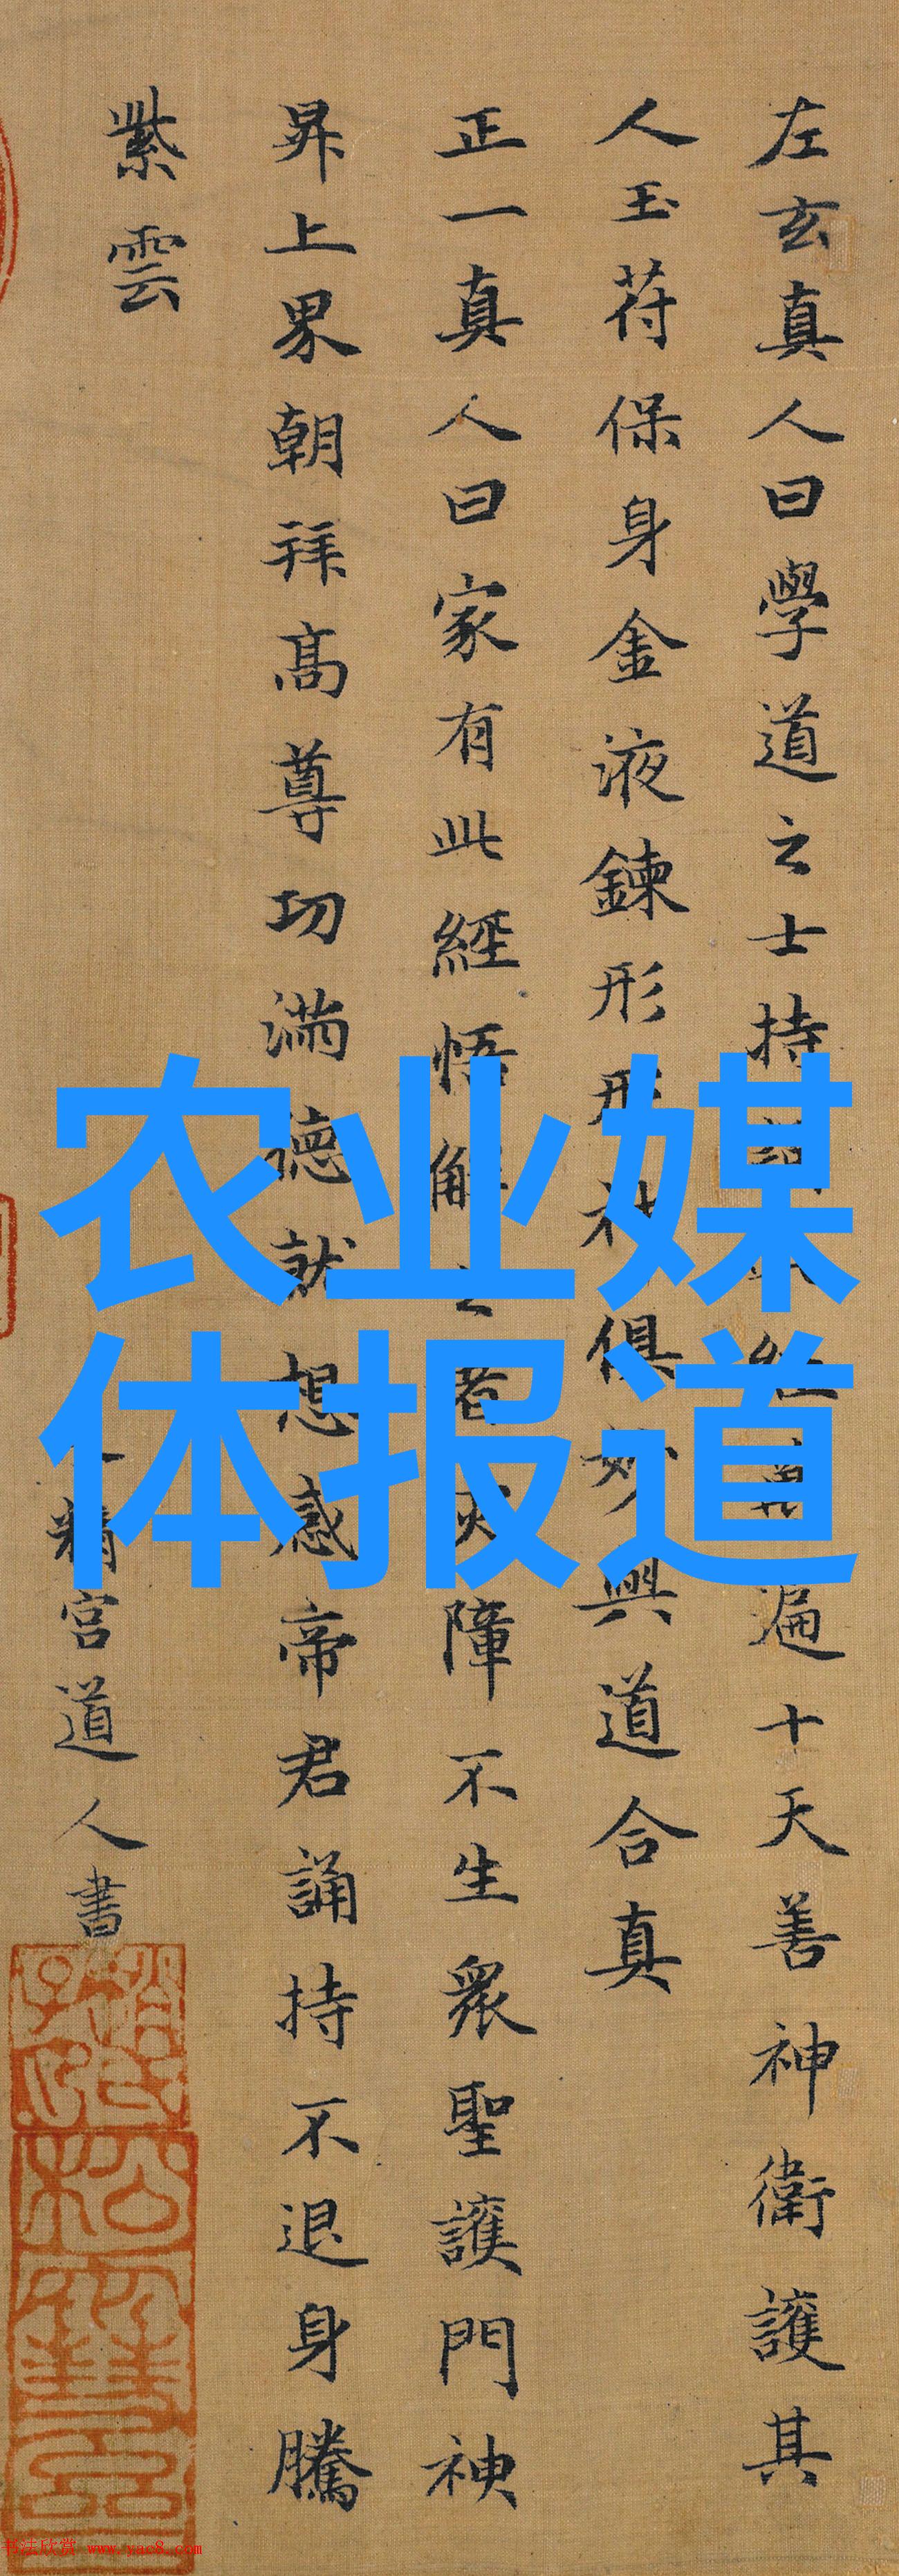 左玄真人曰學道之士持遍十天善神衛護其
人玉苻保身金液鍊形形神俱妙與道合真
正一真人曰家有此經悟解之者灾障不生衆聖護門神
昇上界朝拜高尊功滿德就想感帝君誦持不退身騰
紫雲
精宮道人書
农业媒
体报道
书法欣赏 www.yac8.com